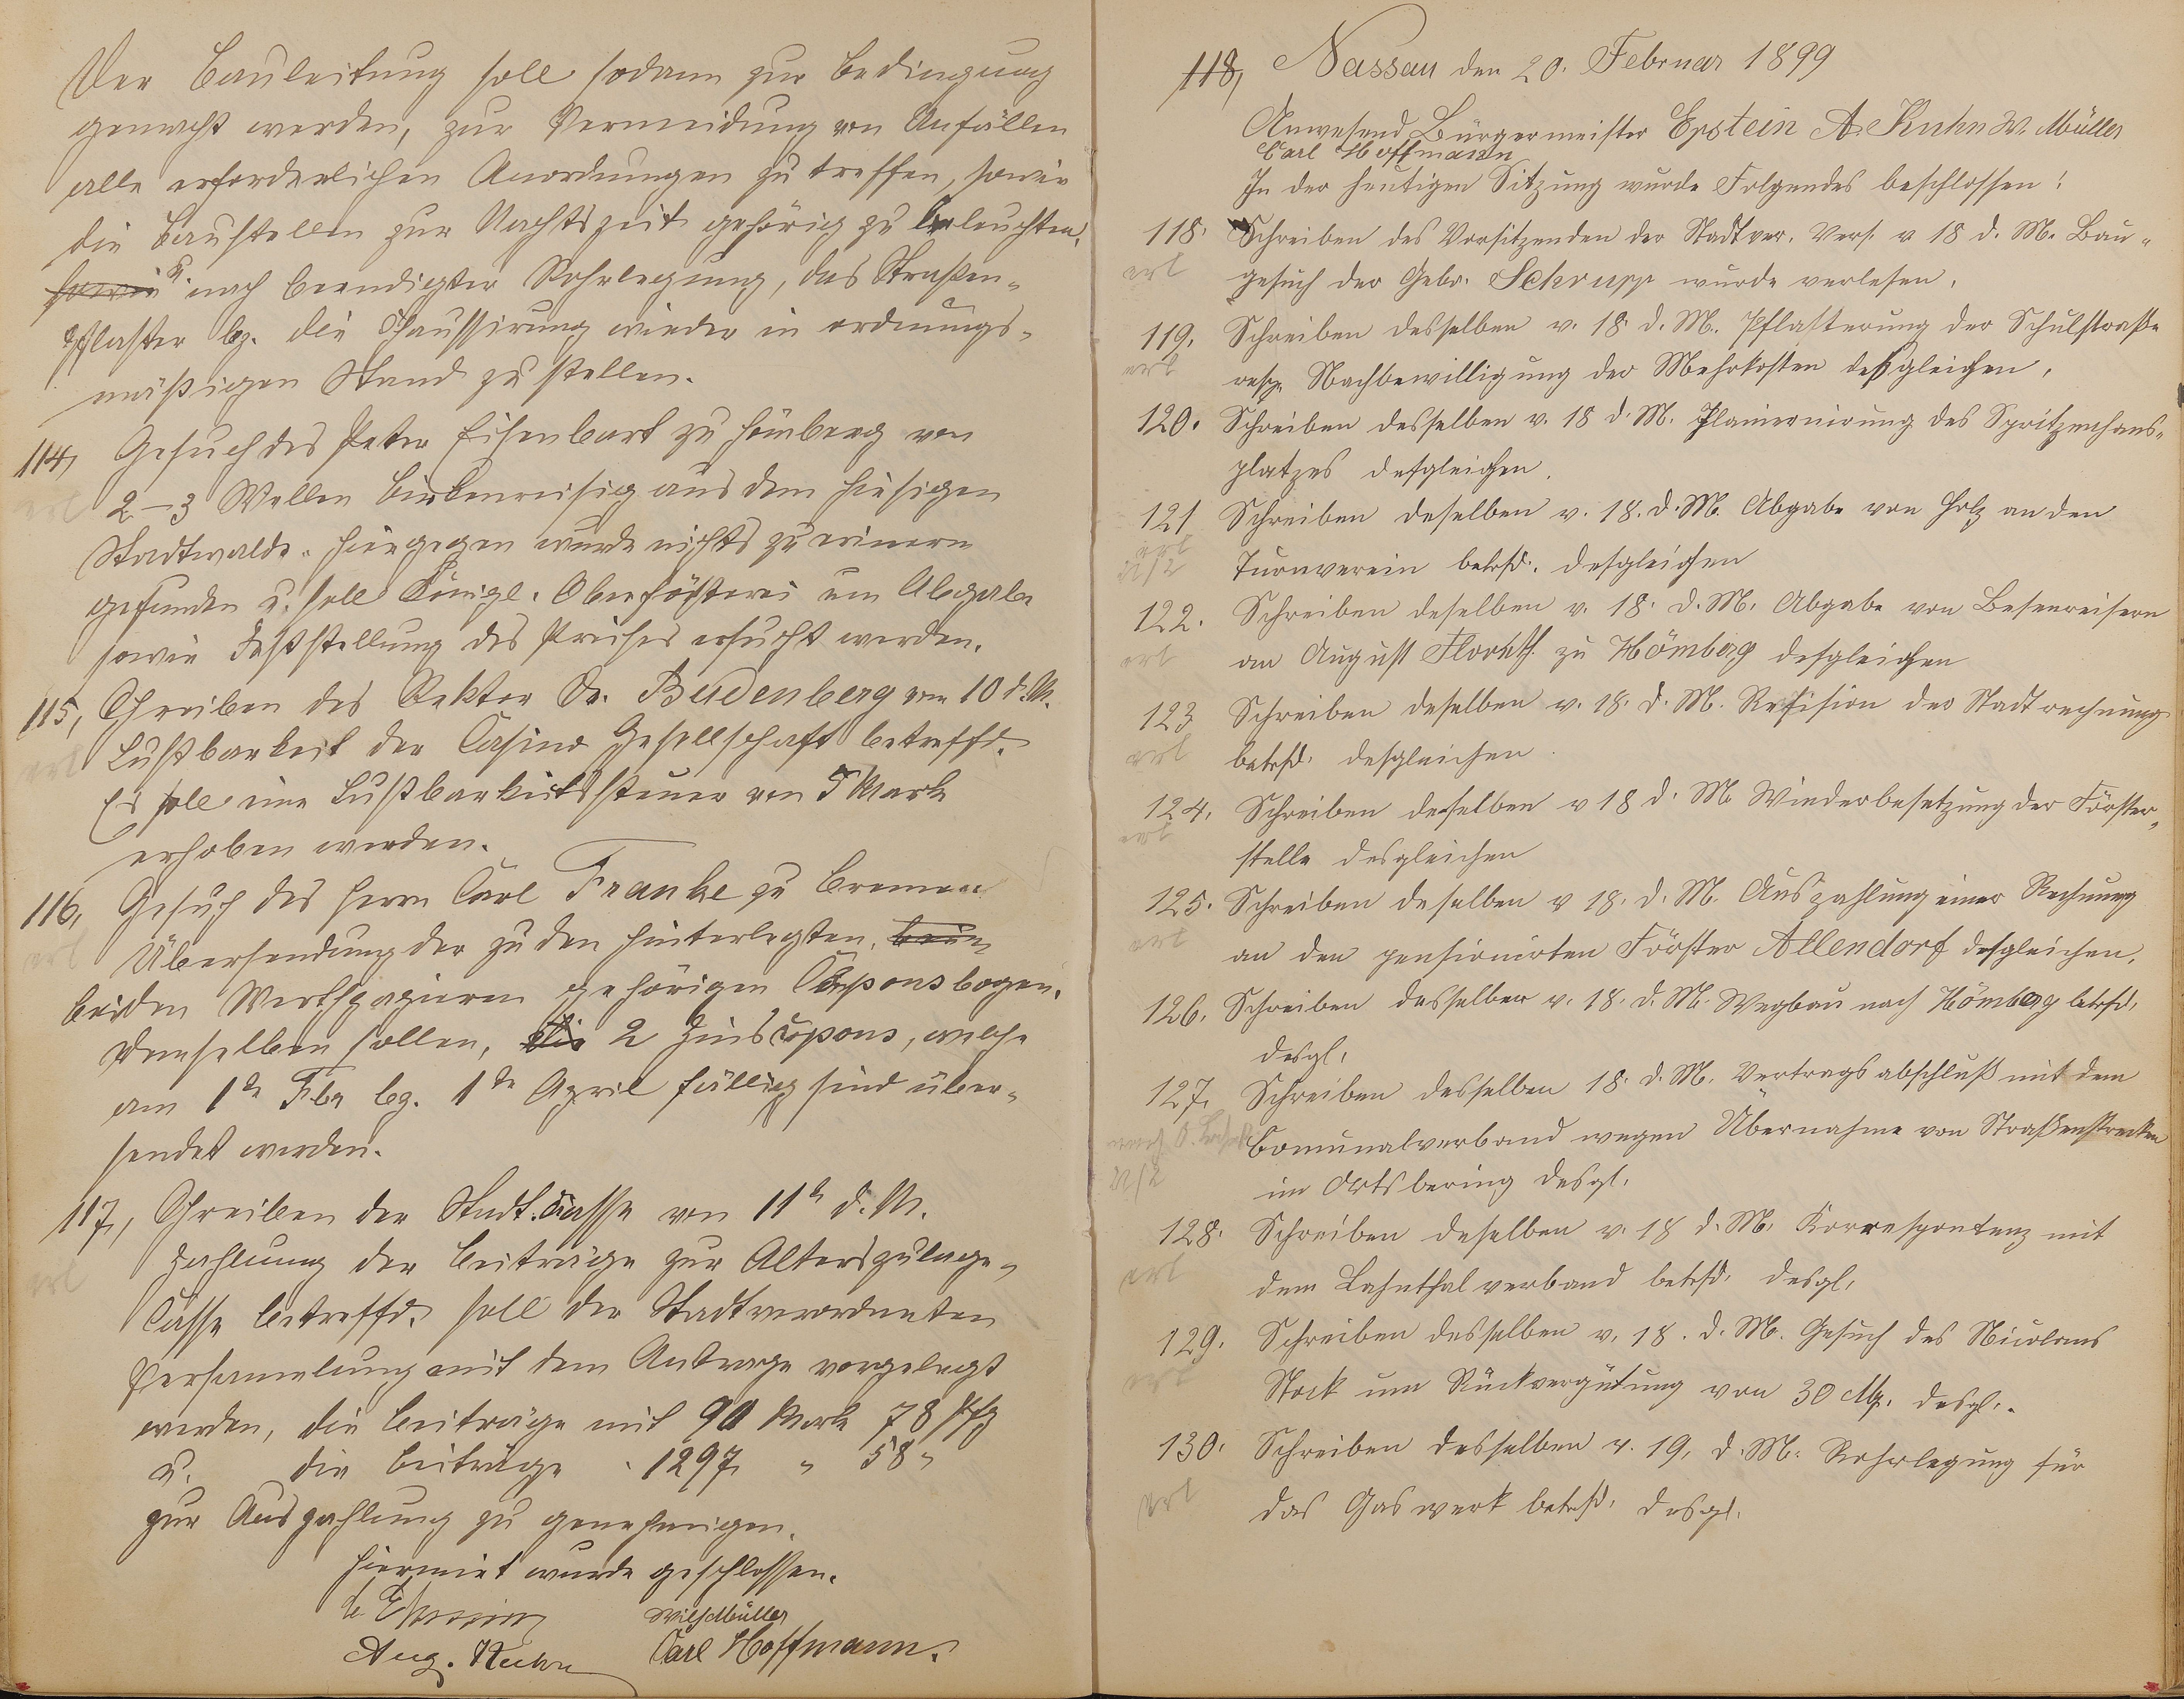 Der Bauleitung soll sodann zur Bedingung
gemacht werden, zur Vermeidung von Unfällen
alle erforderlichen Anordnungen zu treffen, sowie
die Baustellen zur Nachtszeit gehörig zu beleuchten,
sowie u. nach beendigter Rohrlegung, das Straßen-
pflaster bz. die Chaussirung wieder in ordnungs-
mäßigen Stand zu stellen.
114, Gesuch des Peter Eisenbart zu Hömberg von
erl 2–3 Wellen Birkenreisig aus dem hiesigen
Stadtwalde. Hiergegen wurde nichts zu erinnern
gefunden u. soll Königl. Oberförsterei um Abgabe
sowie Feststellung des Preises ersucht werden.
115, Schreiben des Rektor Dr. Budenberg vom 10 d. M.
erl Lustbarkeit der Casino Gesellschaft betreffd.
Es soll eine Lustbarkeitssteuer von 5 Mark
erhoben werden.
116, Gesuch des Herrn Carl Franke zu Bremen
erl Übersendung der zu den hinterlegten,
beiden Werthpapieren gehörigen Cuponsbogen.
Demselben sollen, die 2 Zinscupons, welche
am 1ten Fbr bz. 1ten April fällig sind über-
sendet werden.
117, Schreiben der Stadt.Casse von 11ten d. M.
erl Zahlung der Beiträge zur Alterszulage-
Casse betreffd. soll der Stadtverordneten
Versammlung mit dem Antrage vorgelegt
werden, die Beiträge mit 90 Mark 78 Pfg
u. die Beiträge " 1297 " 58 "
zur Auszahlung zu genehmigen.
Hiermit wurde geschlossen.
Wilh Müller
Aug. Kuhn Carl Hoffmann.
118, Nassau den 20. Februar 1899
Anwesend Bürgermeister Epstein A. Kuhn W. Müller
Carl Hoffmann
In der heutigen Sitzung wurde Folgendes beschlossen:
118. Schreiben des Vorsitzenden der Stadtver. Vers. v 18 d. M. Bau-
erl gesuch der Gebr. Schrupp wurde verlesen.
119. Schreiben desselben v. 18. d. M. Pflasterung der Schulstraße
erl resp. Nachbewilligung der Mehrkosten deßgleichen.
120. Schreiben desselben v. 18 d. M. Planierung des Spritzenhaus-
platzes desgleichen.
121 Schreiben deselben v. 18. d. M. Abgabe von Holz an den
erl 22/2 Turnverein betrfd. desgleichen
122. Schreiben deselben v. 18. d. M. Abgabe von Besenreisern
erl an August Florath zu Hömberg desgleichen
123 Schreiben deselben v. 18. d. M. Refision der Stadtrechnung
erl betrfd. desgleichen
124. Schreiben desselben v 18 d. M. Wiederbesetzung der Förster-
erl stelle desgleichen
125. Schreiben deselben v 18. d. M. Auszahlung einer Rechnung
erl an den pensionirten Förster Allendorf desgleichen.
126. Schreiben desselben v. 18. d. M. Wegbau nach Hömberg betrfd.
desgl.
127. Schreiben desselben 18. d. M. Vertragsabschluß mit dem
Comunalverband wegen Übernahme von Straßenstrecken
22/2 im Ortsbering desgl.
128. Schreiben deselben v. 18 d. M. Korrespontenz mit
erl dem Lahnthalverband betrfd. desgl.
129. Schreiben desselben v. 18. d. M. Gesuch des Nicolaus
erl Stock um Rückvergütung von 30 Mk. desgl.
130. Schreiben desselben v. 19. d. M. Rohrlegung für
erl das Gaswerk betrfd. desgl.